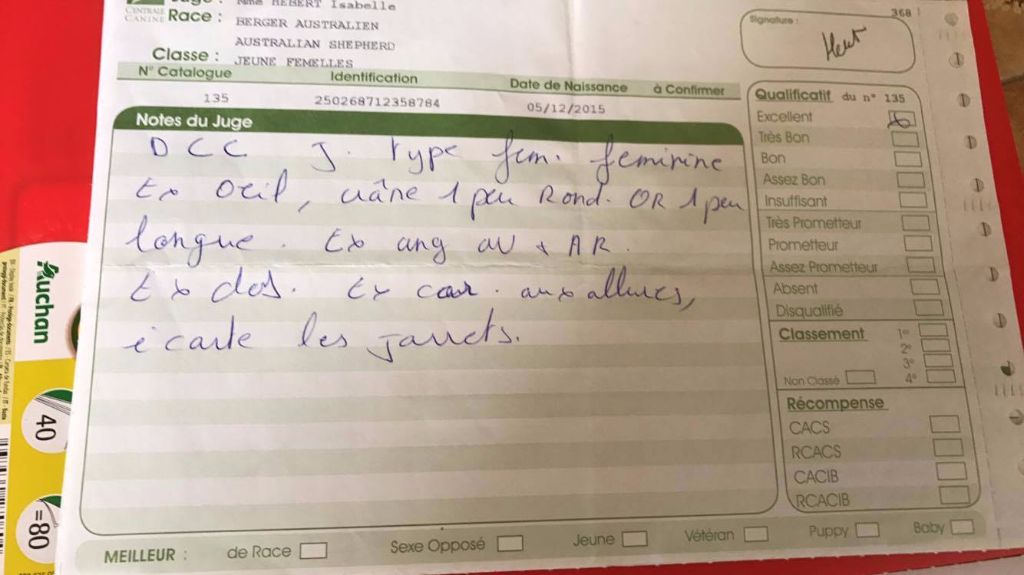 CENTRALE
CANINE
Juge : Mme HEBERT Isabelle
Race : BERGER AUSTRALIEN
AUSTRALIAN SHEPHERD
Classe : JEUNE FEMELLES
368
Signature :
N° Catalogue Identification Date de Naissance à Confirmer
135 250268712358784 05/12/2015
Notes du Juge
DCC J. type fem. feminine
Ex Oeil, crâne 1 peu Rond. OR 1 peu
longue. Ex ang AV + AR.
Ex dos. Ex car. aux allures,
écarte les jarrets.
Qualificatif du n° 135
Excellent
Très Bon
Bon
Assez Bon
Insuffisant
Très Prometteur
Prometteur
Assez Prometteur
Absent
Disqualifié
Classement 1°
2°
3°
Non Classé 4°
Récompense
CACS
RCACS
CACIB
RCACIB
MEILLEUR : de Race Sexe Opposé Jeune Vétéran Puppy Baby
Auchan
40
=80